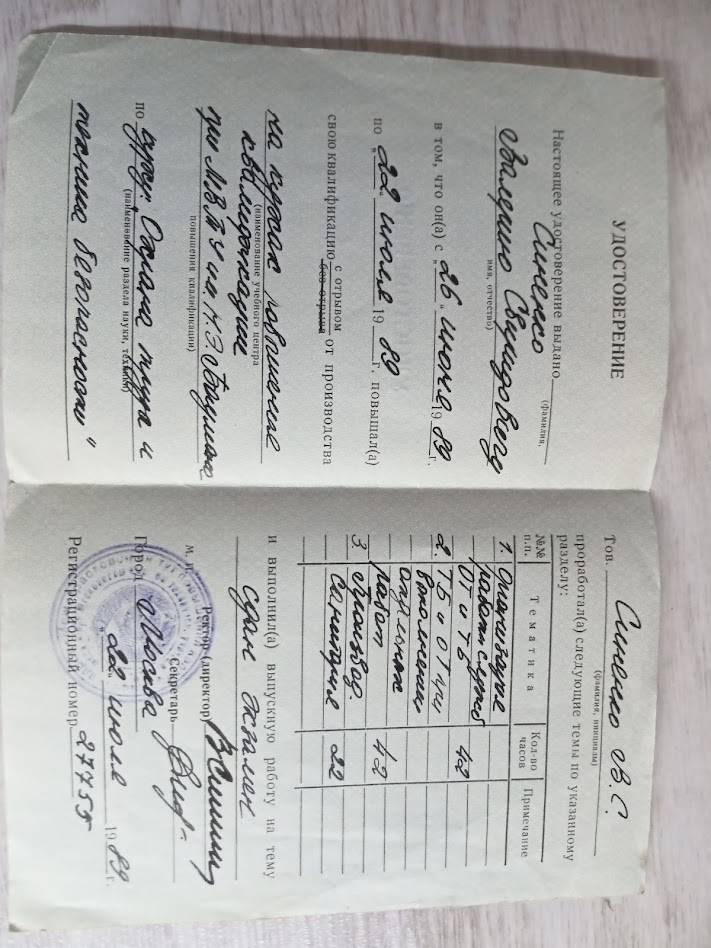 УДОСТОВЕРЕНИЕ
Настоящее удостоверение выдано
(фамилия,
Синенко
Валерию Свиридовичу
имя, отчество)
в том, что он(а) с „26" июня 19 89 г.
по „22" июля 19 89 г. повышал(а)
свою квалификацию с отрывом
без отрыва от производства
на курсах повышения
(наименование учебного центра
квалификации
при М.В.Т.У им. Н.Э Баумана
повышения квалификации)
по курсу: Охрана труда и
(наименование раздела науки, техники)
техника безопасности"
Тов. Синенко В.С.
(фамилия, инициалы)
проработал(а) следующие темы по указанному
разделу:
№№ п.п. Тематика Кол-во часов Примечание
1. Организация
работы служб
ОТ и ТБ 42
2. ТБ и ОТ при
выполнении
отдельных
работ 42
3. Производ.
санитария 22
и выполнил(а) выпускную работу на тему
сдан экзамен
Ректор (директор)
Секретарь
М. П.
Город Москва
„22" июля 19 89 г.
Регистрационный номер 27755